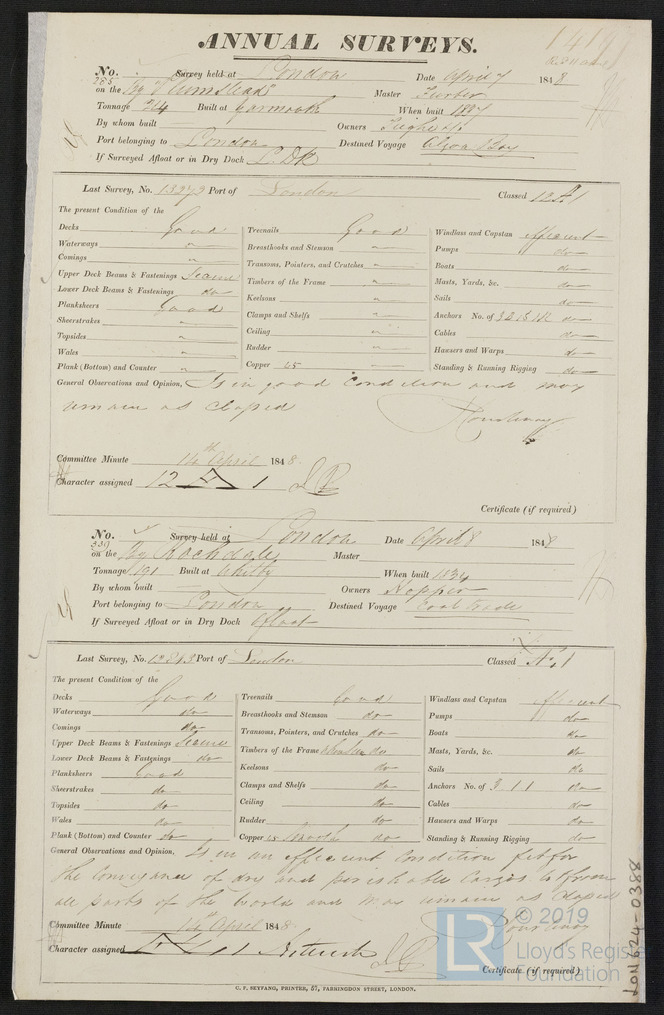 ANNUAL SURVEYS.
No. 285 Survey held at London Date April 7 1848
on the Bg Plumstead Master
Tonnage 214 Built at Yarmouth When built 1837
By whom built Owners
Port belonging to London Destined Voyage Algoa Bay
If Surveyed Afloat or in Dry Dock D. Dk
Last Survey, No. 13973 Port of London Classed 12 A 1
The present Condition of the
Decks Good
Waterways "
Comings "
Upper Deck Beams & Fastenings Secure
Lower Deck Beams & Fastenings do
Planksheers Good
Sheerstrakes "
Topsides "
Wales "
Plank (Bottom) and Counter "
Treenails Good
Breasthooks and Stemson "
Transoms, Pointers, and Crutches "
Timbers of the Frame "
Keelsons "
Clamps and Shelfs "
Ceiling "
Rudder "
Copper 45
Windlass and Capstan efficient
Pumps do
Boats do
Masts, Yards, &c. do
Sails do
Anchors No. of 3 2 B 1 K do
Cables do
Hawsers and Warps do
Standing & Running Rigging do
General Observations and Opinion, Is in good condition and may
remain as classed
Courtenay
Committee Minute 14th April 1848.
Character assigned 12 A 1
Certificate (if required)
No. 339 Survey held at London Date April 8 1848
on the Bg Rochdale Master
Tonnage 191 Built at Whitby When built 1834
By whom built Owners Hopper
Port belonging to London Destined Voyage Coal Trade
If Surveyed Afloat or in Dry Dock Afloat
Last Survey, No. Port of London Classed Æ 1
The present Condition of the
Decks Good
Waterways do
Comings do
Upper Deck Beams & Fastenings Secure
Lower Deck Beams & Fastenings do
Planksheers Good
Sheerstrakes do
Topsides do
Wales do
Plank (Bottom) and Counter do
Treenails Good
Breasthooks and Stemson do
Transoms, Pointers, and Crutches do
Timbers of the Frame do
Keelsons do
Clamps and Shelfs do
Ceiling do
Rudder do
Copper do
Windlass and Capstan efficient
Pumps do
Boats do
Masts, Yards, &c. do
Sails do
Anchors No. of 3. 1. 1 do
Cables do
Hawsers and Warps do
Standing & Running Rigging do
General Observations and Opinion, Is in an efficient condition fit for
the conveyance of dry and perishable Cargos to & from
all parts of the World and may remain as classed
Courtenay
Committee Minute 14th April 1848.
Character assigned Æ 1
Certificate (if required)
C. F. SEYFANG, PRINTER, 57, FARRINGDON STREET, LONDON.
LON624-0388
LR © 2019
Lloyd's Register
Foundation